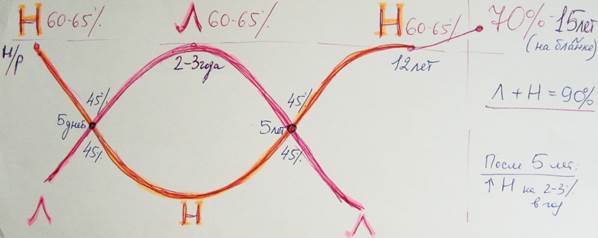 Н 60-65%
Л 60-65%
Н 60-65%
70% - 15 лет
(на бланке)
н/р
2-3 года
12 лет
Л + Н = 90%
45%
5 дней
45%
45%
5 лет
45%
После 5 лет:
↑ Н на 2-3%
в год
Л
Н
Л